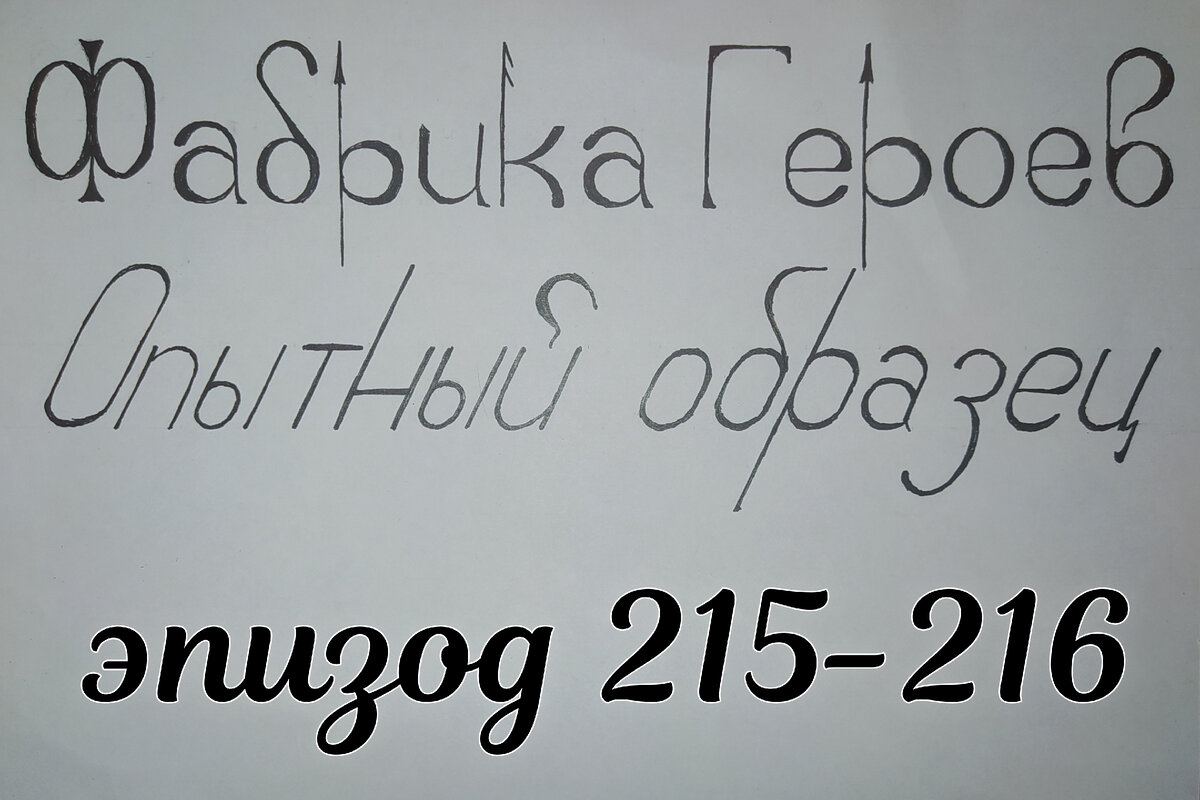 Фабрика Героев
Опытный образец
эпизод 215-216